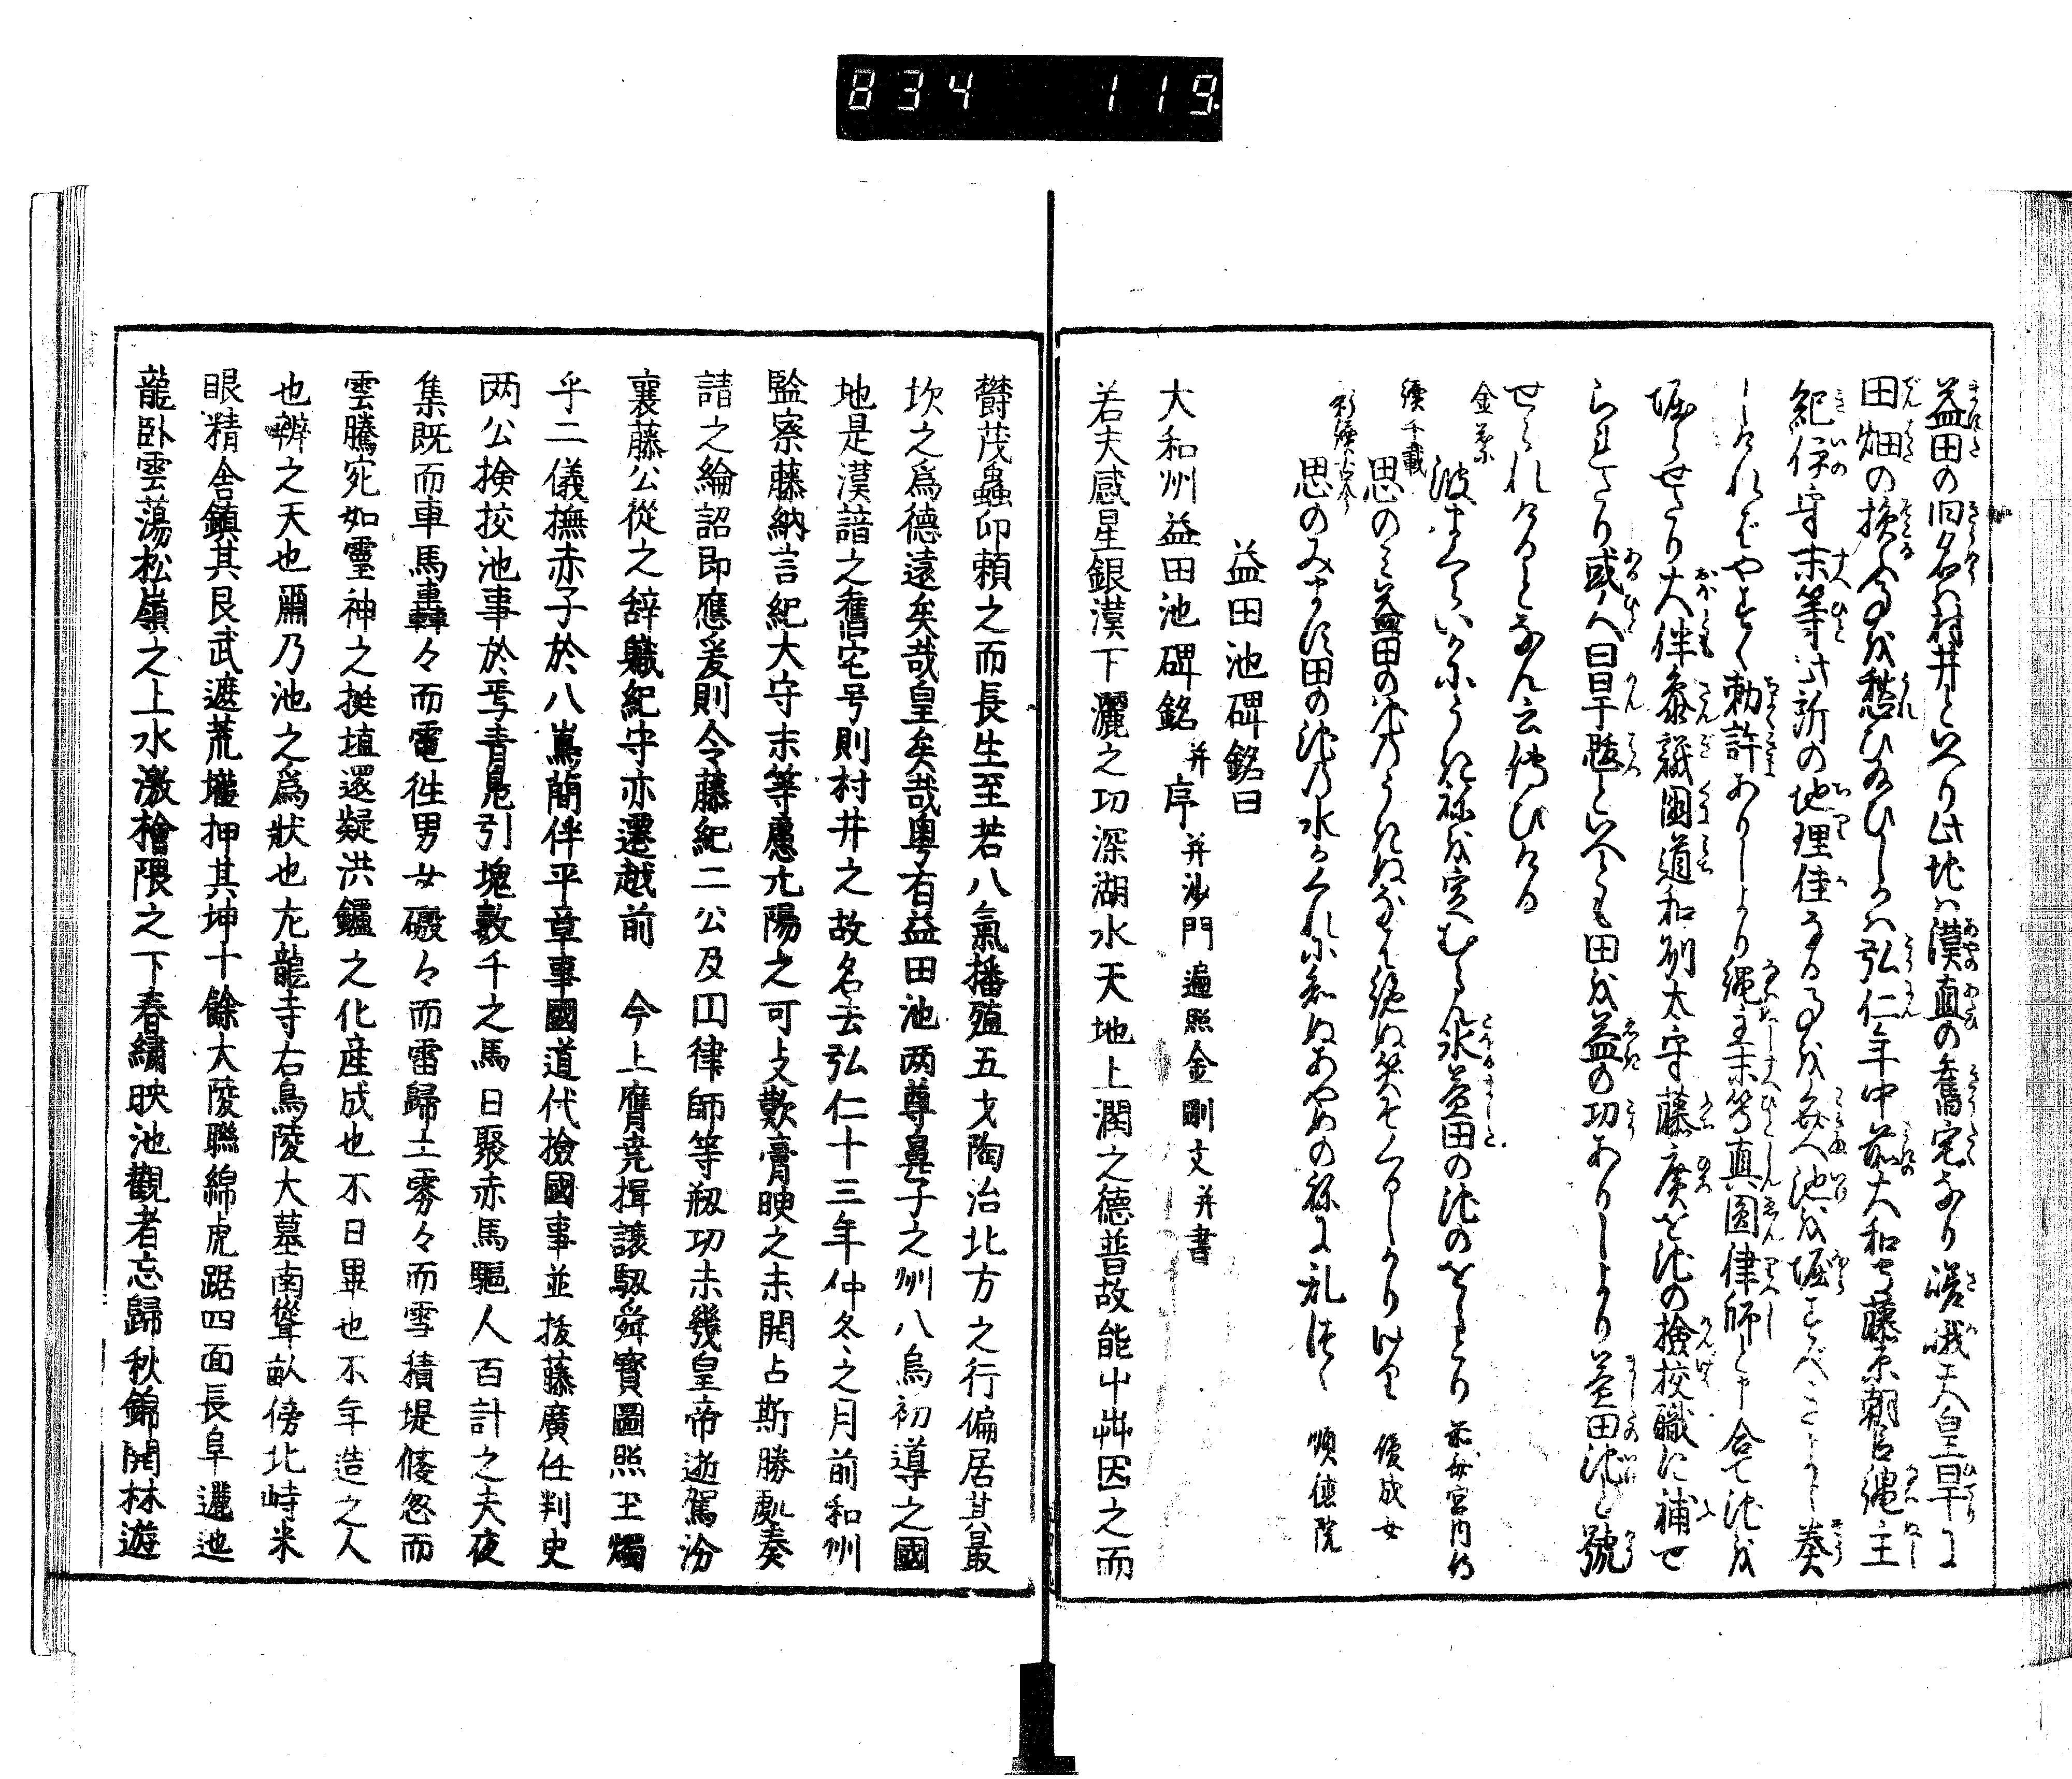 834 119.
益田の旧名ハ村井といへり此地ハ漢直の舊宅なり嵯峨天皇旱に
田畑の損ふるを愁ひ給ひしかバ弘仁年中前大和守藤原朝臣縄主
紀伊守末等此所の地理佳なる事を考へ池を堀すべきよし奏
しけれバやすく勅許ありしより縄主末等真圓律師と申合て池を
堀らせたり大伴参議國道和州太守藤廣を池の検校職に補せ
られたり或人曰旱魃といへとも田を益の功ありしより益田池と號
せられけるとなん云傳ひける
金葉
波まくらいかにうきねを定むらん氷益田の池のをしとり 前斎宮内侍
續千載
思のミ益田の池のうきぬなは絶ぬ契そくるしかりける 俊成女
新續古今
思のみます田の池の水かくれに知ぬあやめの根は乱つゝ 順徳院
益田池碑銘曰
大和州益田池碑銘 并序 并沙門遍照金剛文并書
若夫感星銀漢下灑之功深湖水天地上潤之德普故能屮艸因之而
欝茂蟲卵頼之而長生至若八氣播殖五才陶冶北方之行偏居其最
坎之爲德遠矣哉皇矣哉粤有益田池两尊鼻子之州八烏初導之國
地是漢諳之舊宅号則村井之故名去弘仁十三年仲冬之月前和州
監察藤納言紀大守末等慮亢陽之可支歎膏腴之未開占斯勝處奏
請之綸詔即應爰則令藤紀二公及圓律師等剏功未幾皇帝逝駕汾
襄藤公從之辞職紀守亦遷越前 今上膺尭揖讓馭舜寶圖照玉燭
乎二儀撫赤子於八嶌簡伴平章事國道代撿國事並拔藤廣任判史
两公検挍池事於焉青鳧引塊數千之馬日聚赤馬驅人百計之夫夜
集既而車馬轟々而電徃男女磤々而雷歸土雰々而雪積堤倐忽而
雲騰宛如靈神之挻埴還疑洪鑪之化産成也不日畢也不年造之人
也辦之天也爾乃池之爲狀也左龍寺右鳥陵大墓南聳畝傍北峙米
眼精舎鎮其艮武遮荒壠押其坤十餘大陵聯綿虎踞四面長阜邐迤
龍卧雲蕩松嶺之上水激檜隈之下春繡映池觀者忘歸秋錦開林遊